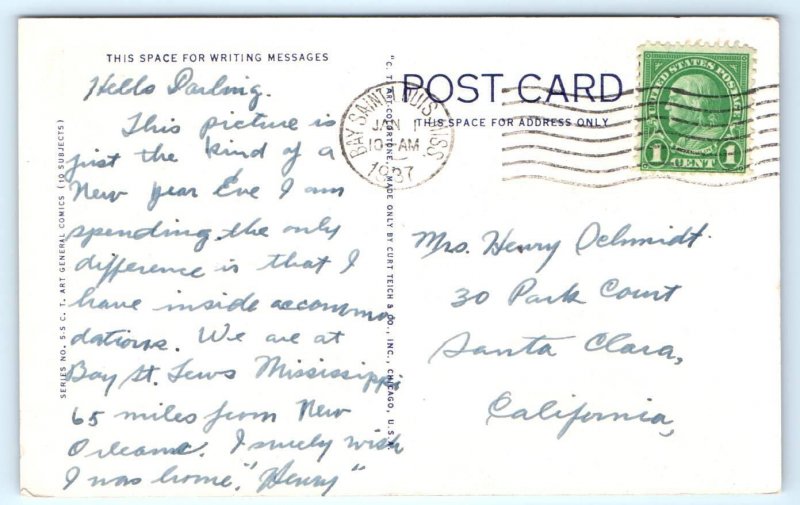 THIS SPACE FOR WRITING MESSAGES
Hello Darling.
This picture is
just the kind of a
New year Eve I am
spending. the only
difference is that I
have inside accommo
dations. We are at
Bay St. Lews Mississippi
65 miles from New
Orleans. I surely wish
I was home. "Henry"
SERIES NO. 5-S C. T. ART GENERAL COMICS (10 SUBJECTS)
"C. T. ART-COLORTONE, MADE ONLY BY CURT TEICH & CO., INC., CHICAGO, U.S.A.
POST CARD
THIS SPACE FOR ADDRESS ONLY
BAY SAINT LOUIS MISS
JAN 1
10 AM
1937
UNITED STATES POSTAGE
1 CENT 1
Mrs. Henry Schmidt.
30 Park Court
Santa Clara,
California,